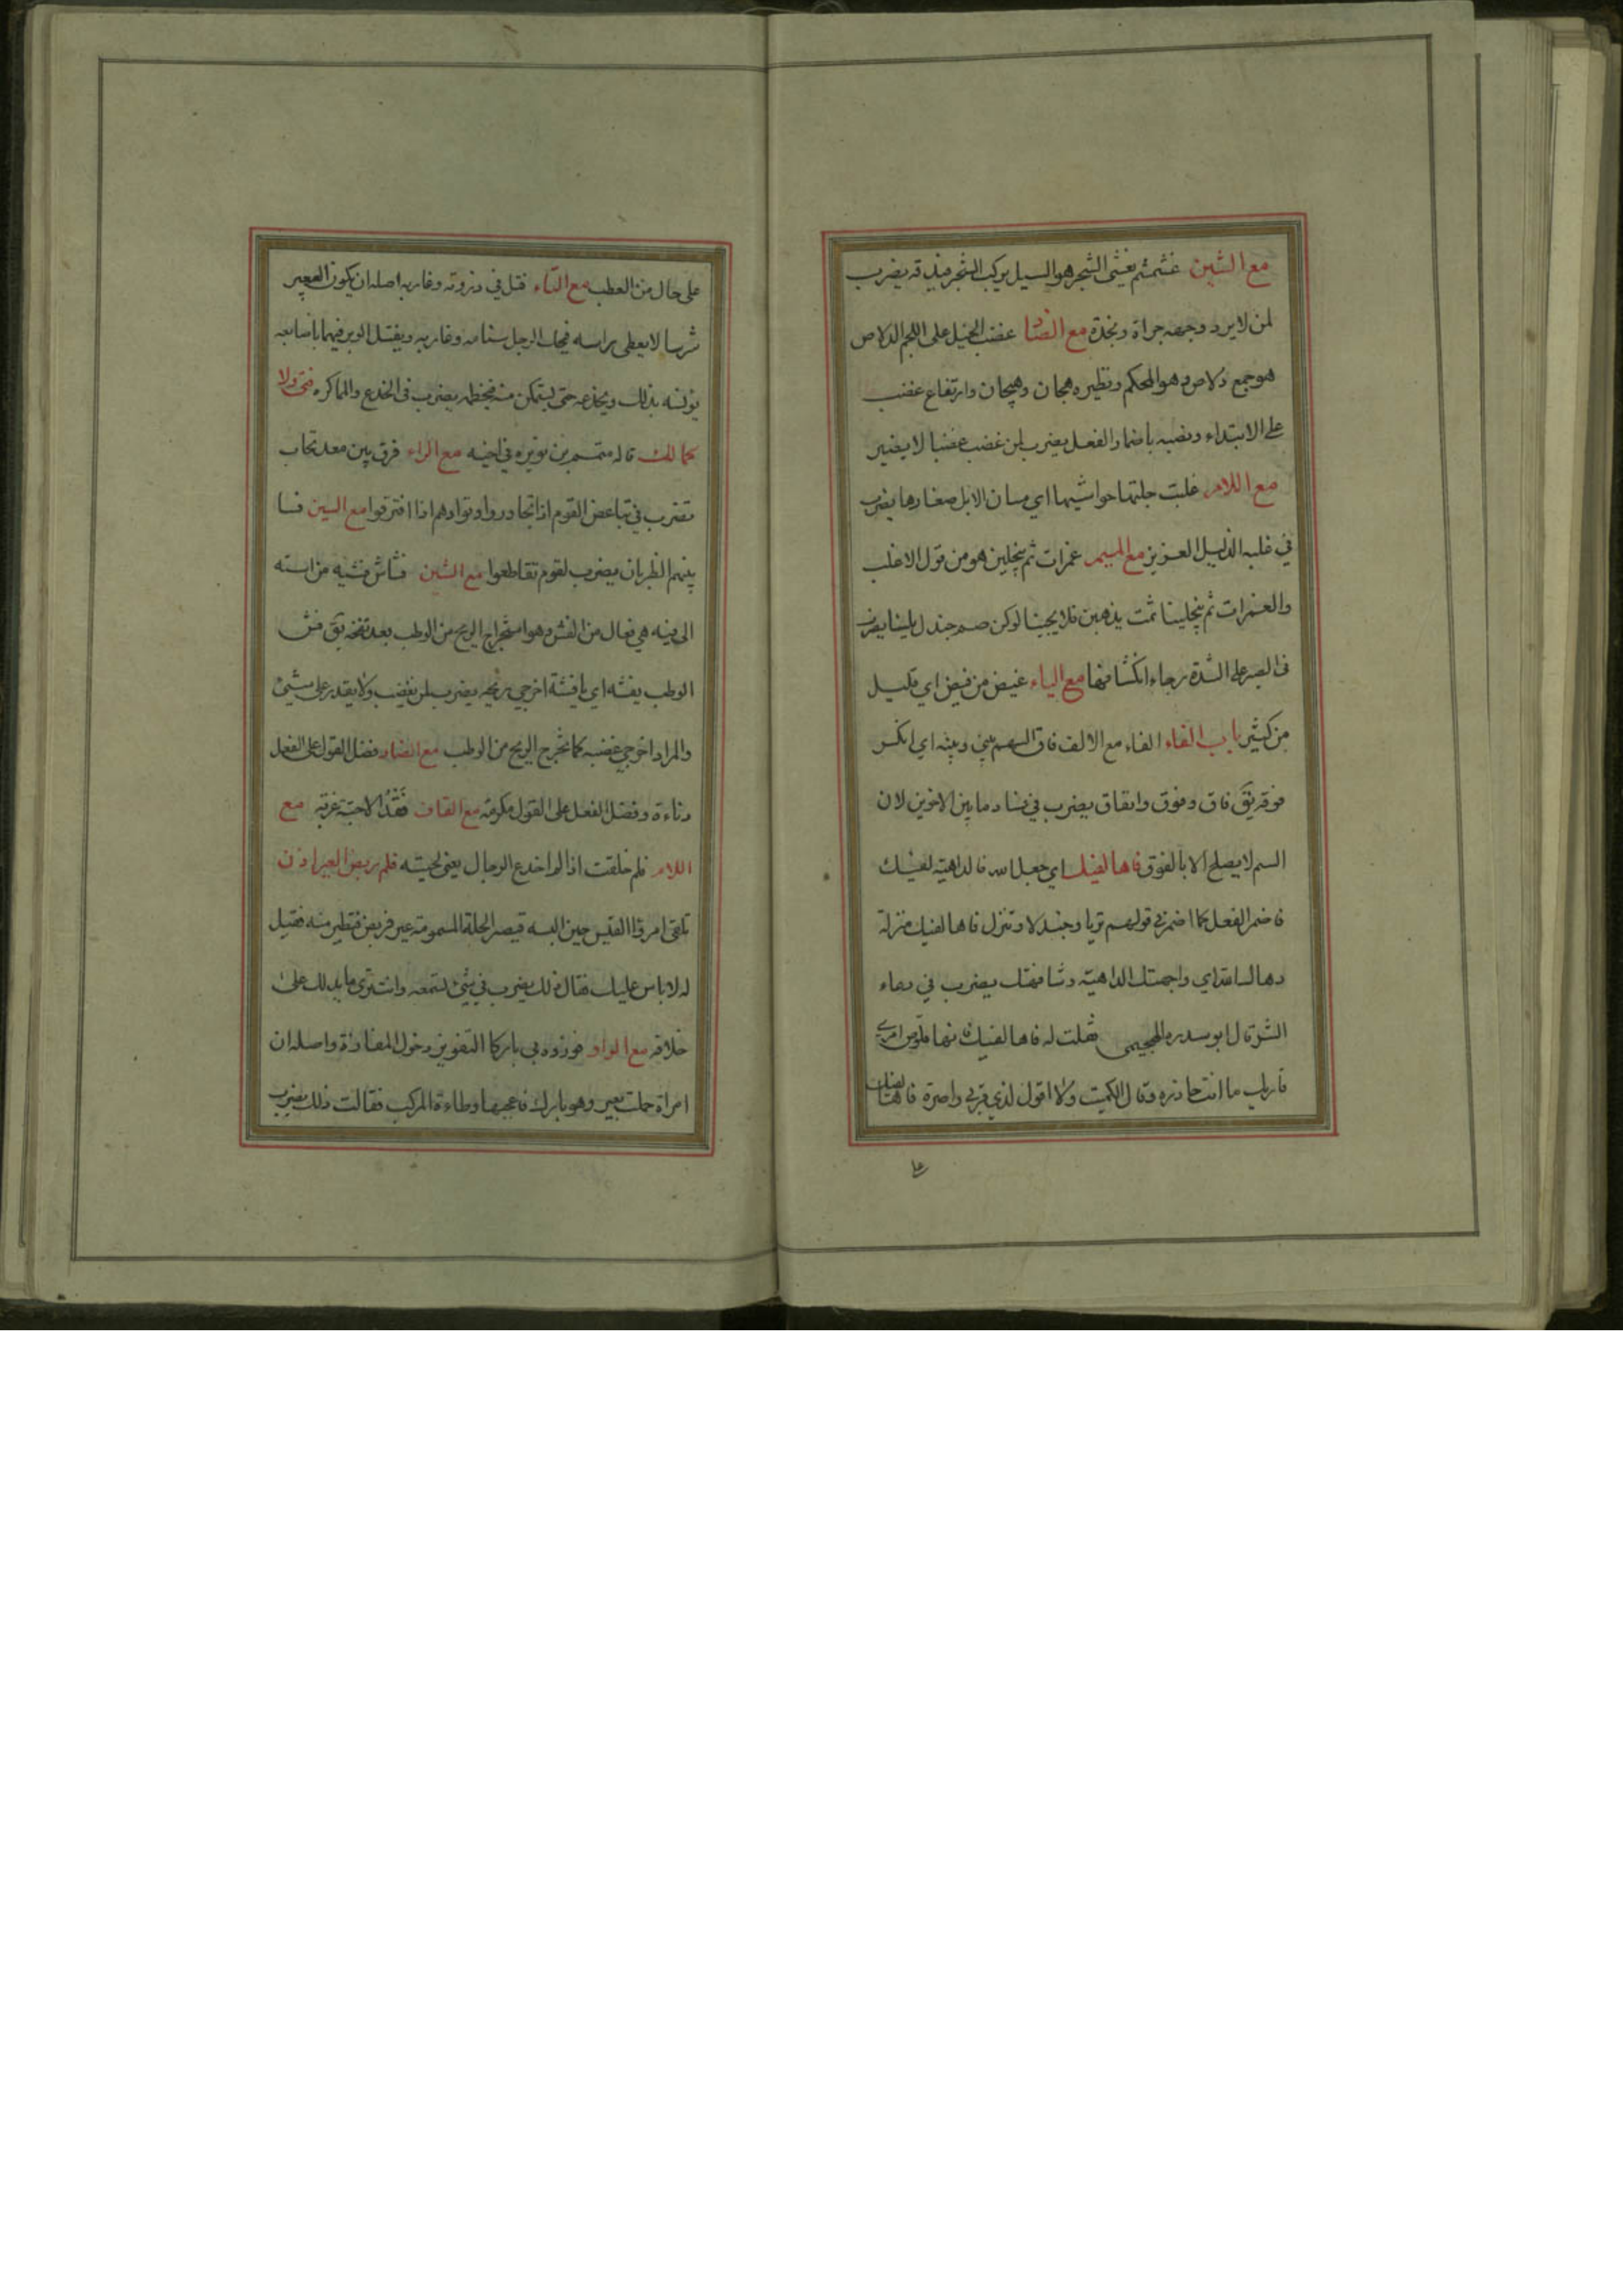 مع الشين غشمشم يغشى الشجر هو السيل يركب الشجر فيدقه يضرب
لمن لا يرد وجهه جراة ونجدة مع الضاد غضب الخيل على اللجم الدلاص
هو جمع دلاص وهو المحكم ونظيره هجان وهيجان وارتفاع غضب
على الابتداء ونصبه باضمار الفعل يضرب لمن غضب غضبا لا يضير
مع اللام غلبت جلتها حواشيها اي مسان الابل صغارها يضرب
في غلبه الذليل العزيز مع الميم غمرات ثم ينجلين هو من قول الاغلب
والغمرات ثم ينجلينا ثمت يذهبن فلا يجينا لوكن صم جندل بلينا يضرب
فى الصبر على الشدة رجاء انكشافها مع الياء غيض من فيض اي قليل
من كثير باب الفاء الفاء مع الالف فاق السهم بيني وبينه اي انكسر
فوقه يقَ فاق وفوق وانفاق يضرب في فساد ما بين الاخوين لان
السهم لا يصلح الا بالفوق فاها لفيك اي جعل الله فا الداهية لفيك
فاضمر الفعل كما اضمر في قولهم تربا وجندلا وتنزل فاها لفيك منزلة
دهاك الله اي واجهتك الداهية وشافهتك يضرب في دعاء
الشر قال ابو سدره الهجيمي فقلت له فاها لفيك فانها قلوص امرئ
قاريك ما انت حاذره وقال الكميت ولا اقول لذي قربى واصرة فاها لفيك
على
على حال من العطب مع التاء فتل في ذروته وغاربه اصله ان يكون البعير
شرسا لا يعطى براسه فيحك الرجل سنامه وغاربه ويفتل الوبر فيهما باصابعه
يؤنسه بذلك ويخدعه حتى يتمكن منه فيخطمه يضرب فى الخدع والمماكره فتى ولا
كمالك قاله متمم بن نويره في اخيه مع الراء فرق بين معد تحاب
يضرب في تباعض القوم اذا تجاوروا وتوادهم اذا افترقوا مع السين فسا
بينهم الظربان يضرب لقوم تقاطعوا مع الشين فشاش فشيه من استه
الى فيه هي فعال من الفش وهو استخراج الريح من الوطب بعد نفخه يقَ فش
الوطب يفشه اي يا فيشة اخرجي ريحه يضرب لمن يغضب ولا يقدر على شيئ
والمراد اخرجي غضبه كما تخرج الريح من الوطب مع الضاد فضل القول على الفعل
دناءة وفضل الفعل على القول مكرمة مع القاف فَقْدُ الاحبّة غربة مع
اللام فلم خلقت اذا لم اخدع الرجال يعني لحيته فلم ربض العير اذن
تلقى امرؤ القيس حين البسه قيصر الحلة المسمومة عير فربض فتطير منه فقيل
له لا باس عليك فقال ذلك يضرب في شيئ تستمعه وانت ترى ما يدلك على
خلافه مع الواو فوزوه بي باركا التفويز دخول المفازة واصله ان
امراة حملت بعير وهو بارك فاعجبها وطاءة المركب فقالت ذلك يضرب